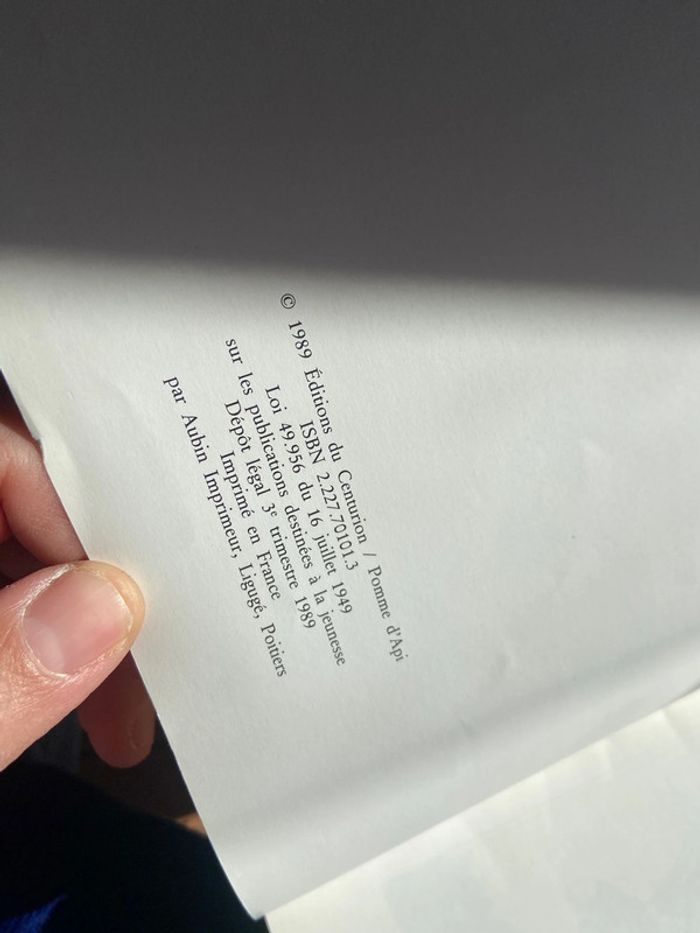 © 1989 Éditions du Centurion / Pomme d'Api
ISBN 2.227.70101.3
Loi 49.956 du 16 juillet 1949
sur les publications destinées à la jeunesse
Dépôt légal 3e trimestre 1989
Imprimé en France
par Aubin Imprimeur, Ligugé, Poitiers